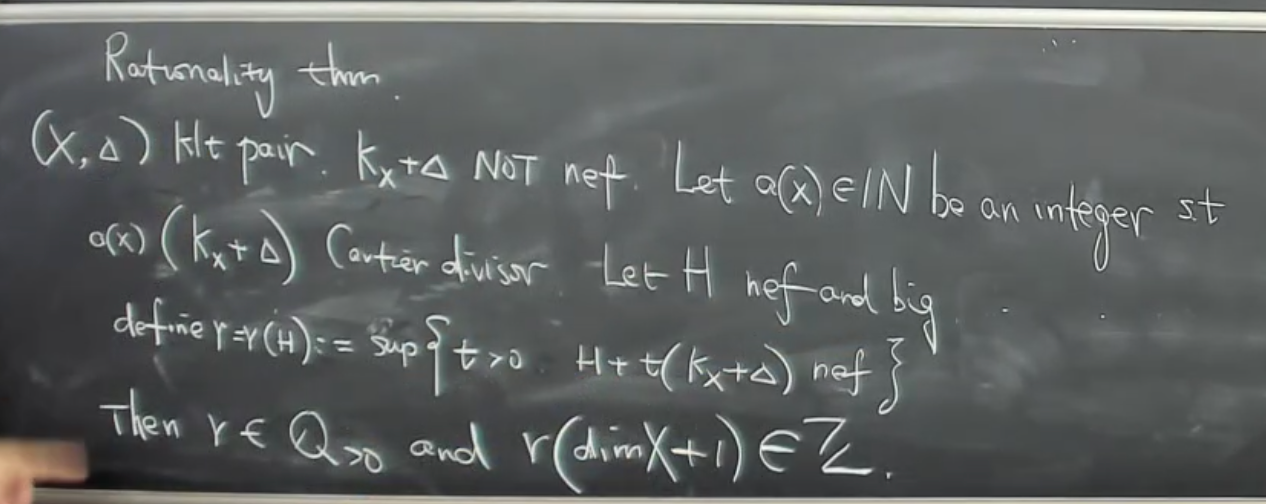 Rationality thm.
(X, Δ) klt pair. K_X+Δ NOT nef. Let a(x) ∈ ℕ be an integer s.t
a(x) (K_X+Δ) Cartier divisor. Let H nef and big.
define r=r(H) := sup { t>0 H+t(K_X+Δ) nef }
Then r ∈ ℚ_{>0} and r(dim X+1) ∈ ℤ.